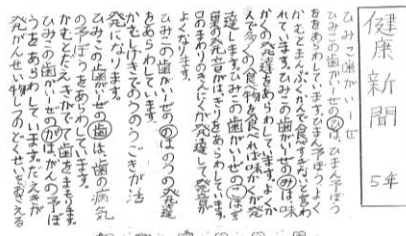 健康新聞
5年
ひみこ歯がいーぜ
ひみこの歯がいーぜの㋪はひまん予ぼう
をあらわしています。ひまん予ぼうはよく
かむとまんぷくかんで食べすぎないと言わ
れています。ひみこの歯がいーぜのみは、味
かくの発達をあらわしています。よくか
んで多くの食べ物を食べれば味かくが発
達します。ひみこの歯がいーぜのこは言
葉の発音がはっきりをあらわしています。
口のまわりのきんにくが発達して発音が
よくなります。
ひみこの歯がいーぜののはのうの発達
をあらわしています。
かむしげきでのうのうごきが活
発になります。
ひみこの歯がいーぜの歯は、歯の病気
の予ぼうをあらわしています。
かむとだえきがでて歯をまもります。
ひみこの歯がいーぜのがは、がんの予ぼ
うをあらわしています。だえきが
発がんせい物しつのどくせいをおさえる